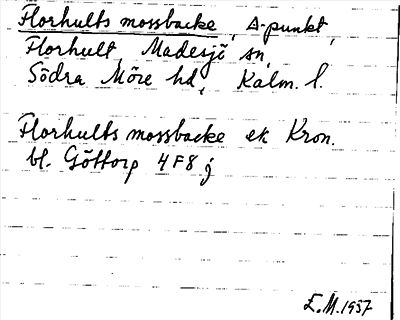 Florhults mossbacke, Δ-punkt,
Florhult, Madesjö sn,
Södra Möre hd, Kalm. l.
Florhults mossbacke ek Kron.
bl. Göttorp 4F8j
E.M. 1937